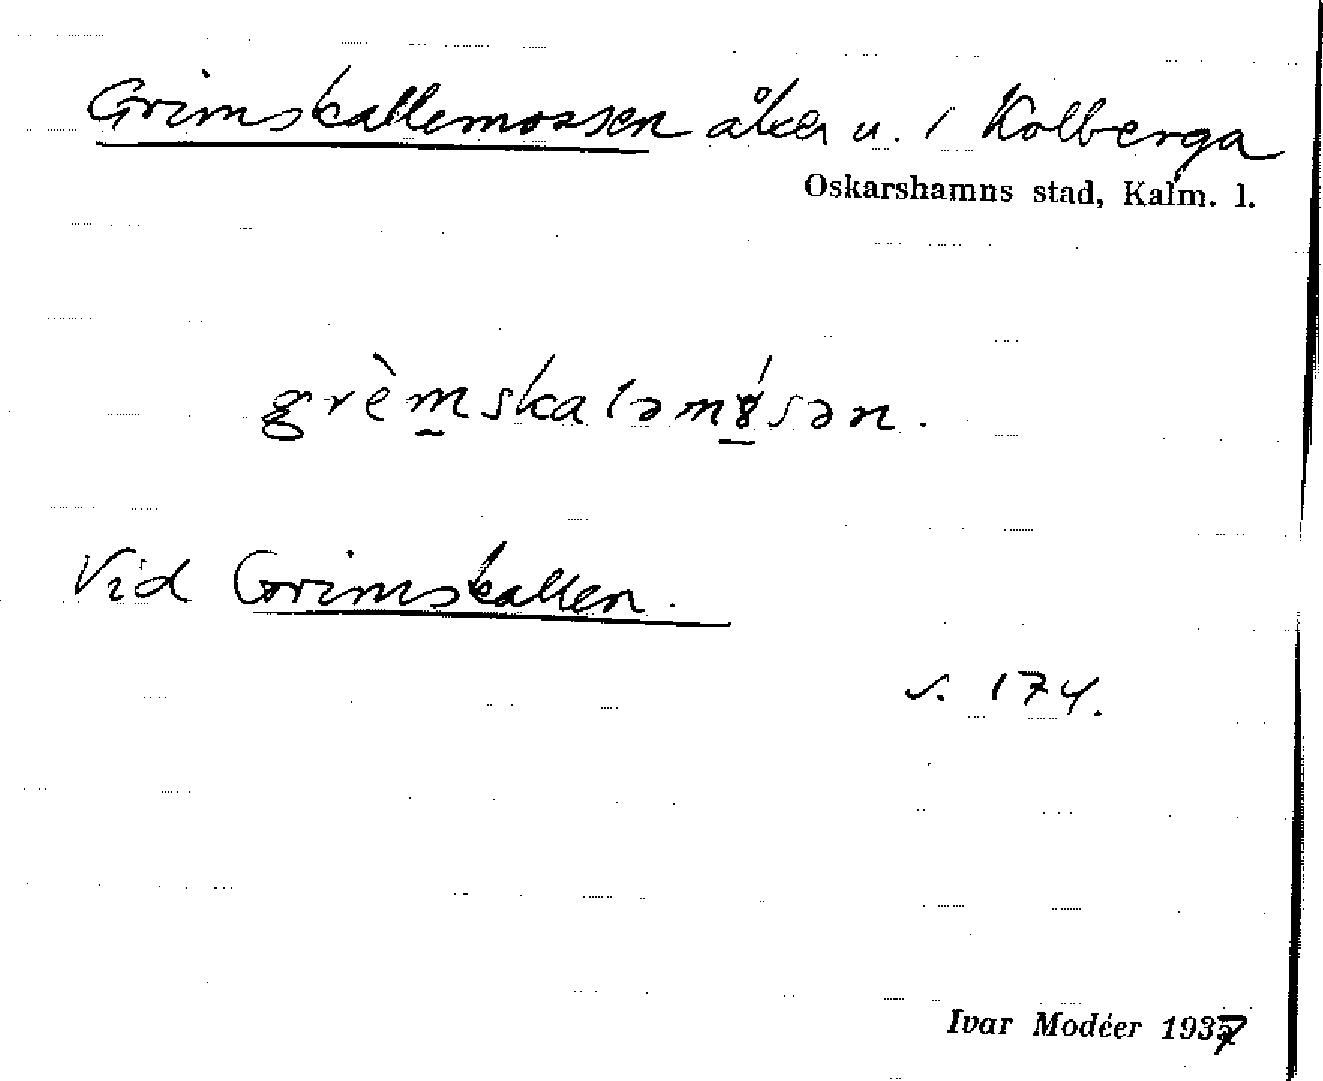 Grimskallemossen åker u. / Kolberga
Oskarshamns stad, Kalm. l.
grèmskaləmɤ́sən.
Vid Grimskallen.
s. 174.
Ivar Modéer 1937